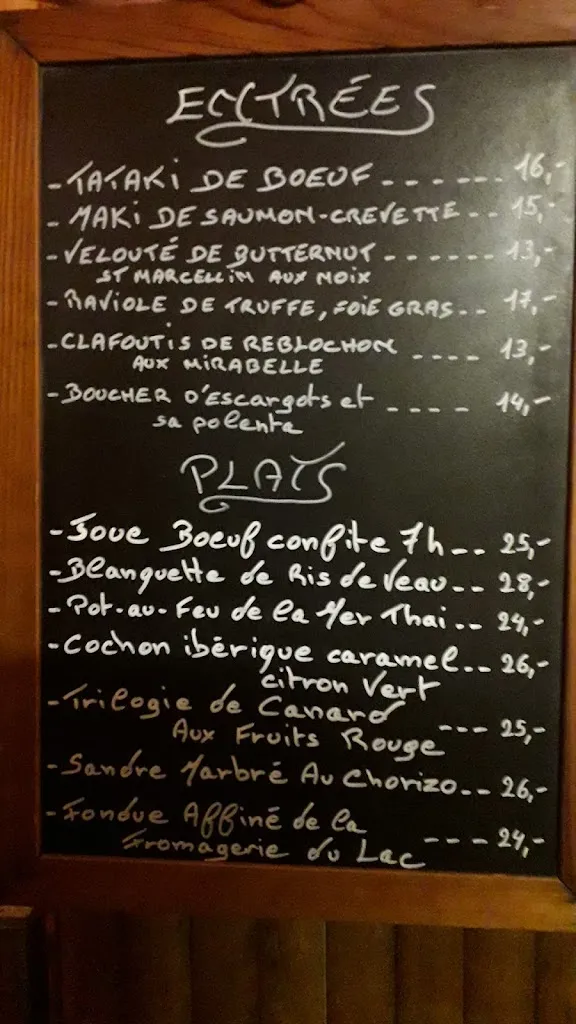 ENTRÉES
- TATAKI DE BOEUF ------- 16,-
- MAKI DE SAUMON-CREVETTE -- 15,-
- VELOUTÉ DE BUTTERNUT ------ 13,-
ST MARCELLIN AUX NOIX
- RAVIOLE DE TRUFFE, FOIE GRAS -- 17,-
- CLAFOUTIS DE REBLOCHON ---- 13,-
AUX MIRABELLE
- BOUCHER D'Escargots et ---- 14,-
sa polenta
PLATS
- Joue Boeuf confite 7h -- 25,-
- Blanquette de Ris de Veau -- 28,-
- Pot-au-Feu de la Mer Thai -- 24,-
- Cochon ibérique caramel -- 26,-
citron Vert
- Trilogie de Canard
Aux Fruits Rouge --- 25,-
- Sandre Marbré Au Chorizo -- 26,-
- Fondue Affiné de la
Fromagerie du Lac --- 24,-